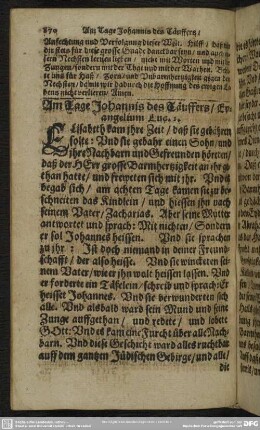 Am Tage Johannis des Täuffers/
Anfechtung und Verfolgung dieser Welt. Hilff/ daß wir
dir stets für diese grosse Gnade danckbar seyn/ und auch
dem Nechsten lernen lieben/ nicht mit Worten und mit
Zungen/ sondern mit der That und mit der Warheit. Be-
hüt uns für Haß/ Zorn/ und Unbarmhertzigkeit gegen den
Nechsten/ damit wir dadurch die Hoffnung des ewigen Le-
bens nicht verlieren/ Amen.
Am Tage Johannis des Täuffers/ Ev-
angelium Luc. 1.
Elisabeth kam ihre Zeit/ daß sie gebären
solte: Vnd sie gebahr einen Sohn/ und
ihre Nachbarn und Gefreundten hörten/
daß der HErr grosse Barmhertzigkeit an ihr ge-
than hatte/ und freweten sich mit ihr. Vnd es
begab sich/ am achten Tage kamen sie zu be-
schneiten das Kindlein/ und hiessen ihn nach
seinem Vater/ Zacharias. Aber seine Mutter
antwortet und sprach: Mit nichten/ Sondern
er sol Johannes heissen. Vnd sie sprachen
zu ihr: Ist doch niemand in deiner Freund-
schafft/ der also heisse. Vnd sie winckten sei-
nem Vater/ wie er ihn wolt heissen lassen. Vnd
er forderte ein Täfelein/ schreib und sprach: Er
heisset Johannes. Vnd sie verwunderten sich
alle. Vnd alsbald ward sein Mund und seine
Zunge auffgethan/ und redete/ und lobete
GOtt: Vnd es kam eine Furcht über alle Nach-
barn. Vnd diese Geschicht ward alles ruchtbar
auff dem gantzen Jüdischen Gebirge/ und alle/
die